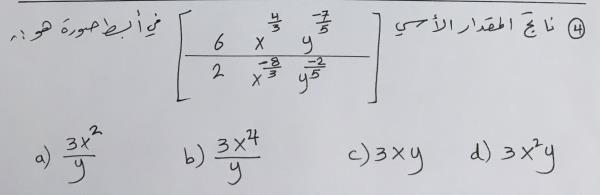 ④ ناتج المقدار الأسي [6 x^(4/3) y^(-7/5) / 2 x^(-8/3) y^(-2/5)] في أبسط صورة هو :
a) 3x²/y b) 3x⁴/y c) 3xy d) 3x²y